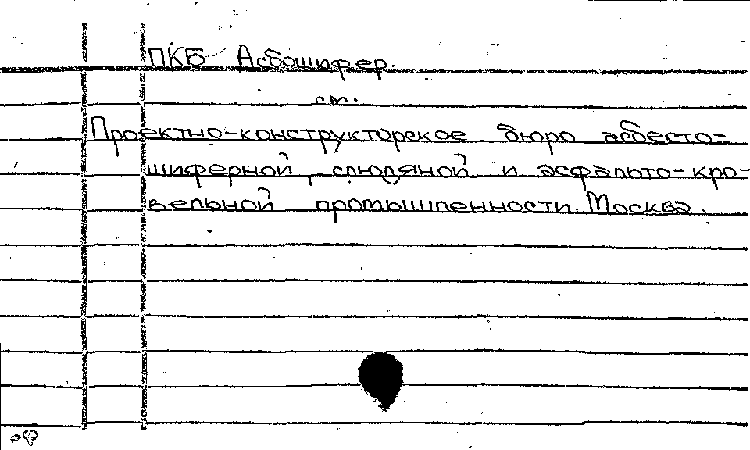 ПКБ Асбошифер.
см.
Проектно-конструкторское бюро асбесто-
шиферной, слюдяной и асфальто-кро-
вельной промышленности. Москва.